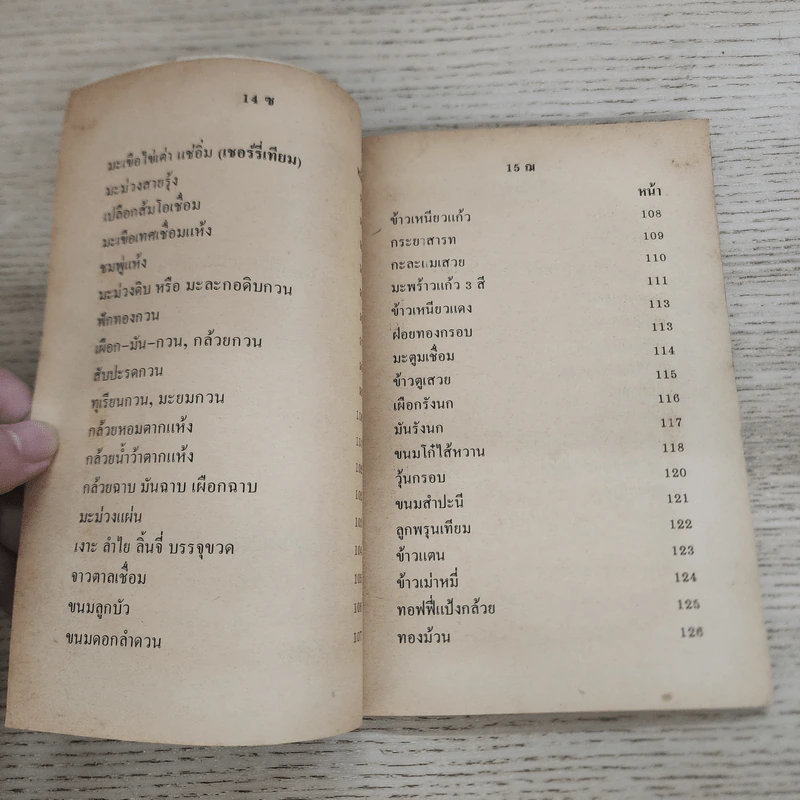 14 ซ
มะเขือไข่เต่า แช่อิ่ม (เชอร์รี่เทียม)
มะม่วงสายรุ้ง
เปลือกส้มโอเชื่อม
มะเขือเทศเชื่อมแห้ง
ชมพู่แห้ง
มะม่วงดิบ หรือ มะละกอดิบกวน
ฟักทองกวน
เผือก-มัน-กวน, กล้วยกวน
สับปะรดกวน
ทุเรียนกวน, มะยมกวน
กล้วยหอมตากแห้ง
กล้วยน้ำว้าตากแห้ง
กล้วยฉาบ มันฉาบ เผือกฉาบ
มะม่วงแผ่น
เงาะ ลำไย ลิ้นจี่ บรรจุขวด
จาวตาลเชื่อม
ขนมลูกบัว
ขนมดอกลำดวน 107
15 ฌ
หน้า
ข้าวเหนียวแก้ว 108
กระยาสารท 109
กะละแมเสวย 110
มะพร้าวแก้ว 3 สี 111
ข้าวเหนียวแดง 113
ฝอยทองกรอบ 113
มะตูมเชื่อม 114
ข้าวตูเสวย 115
เผือกรังนก 116
มันรังนก 117
ขนมโก๋ไส้หวาน 118
วุ้นกรอบ 120
ขนมสำปะนี 121
ลูกพรุนเทียม 122
ข้าวแตน 123
ข้าวเม่าหมี่ 124
ทอฟฟี่แป้งกล้วย 125
ทองม้วน 126